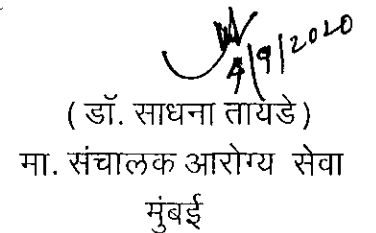 4/9/2020
( डॉ. साधना तायडे )
मा. संचालक आरोग्य सेवा
मुंबई